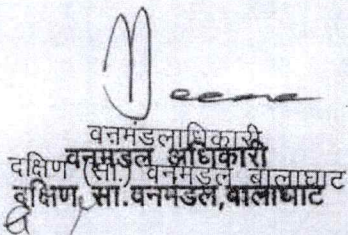 वनमंडलाधिकारी
वनमंडल अधिकारी
दक्षिण (सा.) वनमंडल बालाघाट
दक्षिण सा.वनमंडल,बालाघाट